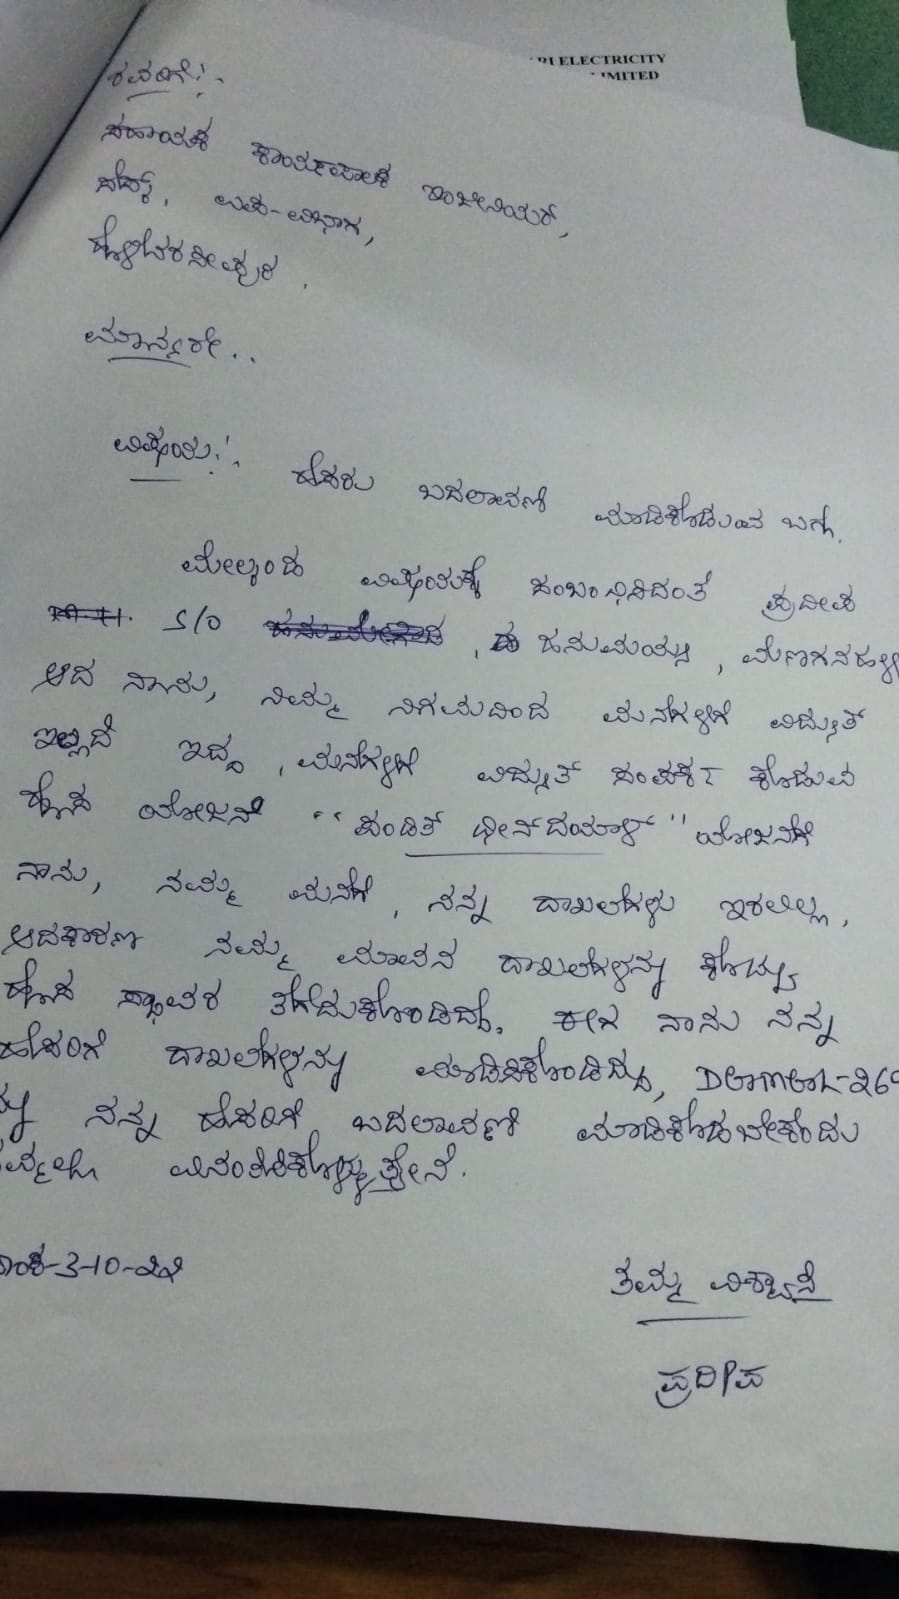 ELECTRICITY
LIMITED
ರವರಿಗೆ:-
ಸಹಾಯಕ ಕಾರ್ಯಪಾಲಕ ಇಂಜೀನಿಯರ್,
ಸೆಸ್ಕ್, ಉಪ-ವಿಭಾಗ,
ಹೊಳೆನರಸೀಪುರ.
ಮಾನ್ಯರೇ..
ವಿಷಯ:- ಹೆಸರು ಬದಲಾವಣೆ ಮಾಡಿಕೊಡುವ ಬಗ್ಗೆ.
ಮೇಲ್ಕಂಡ ವಿಷಯಕ್ಕೆ ಸಂಬಂಧಿಸಿದಂತೆ ಪ್ರದೀಪ
S/O , ಹನುಮಯ್ಯ,
ಆದ ನಾನು, ನಿಮ್ಮ ನಿಗಮದಿಂದ ಮನೆಗಳಿಗೆ ವಿದ್ಯುತ್
ಇಲ್ಲದೆ ಇದ್ದ, ಮನೆಗಳಿಗೆ ವಿದ್ಯುತ್ ಸಂಪರ್ಕ ಕೊಡುವ
ಹೊಸ ಯೋಜನೆ "ಪಂಡಿತ್ ಧೀನ್‌ದಯಾಳ್" ಯೋಜನೆಗೆ
ನಾನು, ನಮ್ಮ ಮನೆಗೆ, ನನ್ನ ದಾಖಲೆಗಳು ಇರಲಿಲ್ಲ,
ಆದಕಾರಣ ನಮ್ಮ ಮಾವನ ದಾಖಲೆಗಳನ್ನು ಕೊಟ್ಟು
ಹೊಸ ಸ್ಥಾವರ ತೆಗೆದುಕೊಂಡಿದ್ದೆ. ಈಗ ನಾನು ನನ್ನ
ಹೆಸರಿಗೆ ದಾಖಲೆಗಳನ್ನು ಮಾಡಿಸಿಕೊಂಡಿದ್ದು,
ನನ್ನ ಹೆಸರಿಗೆ ಬದಲಾವಣೆ ಮಾಡಿಕೊಡಬೇಕೆಂದು
ವಿನಂತಿಸಿಕೊಳ್ಳುತ್ತೇನೆ.
-3-10-22
ತಮ್ಮ ವಿಶ್ವಾಸಿ
ಪ್ರದೀಪ